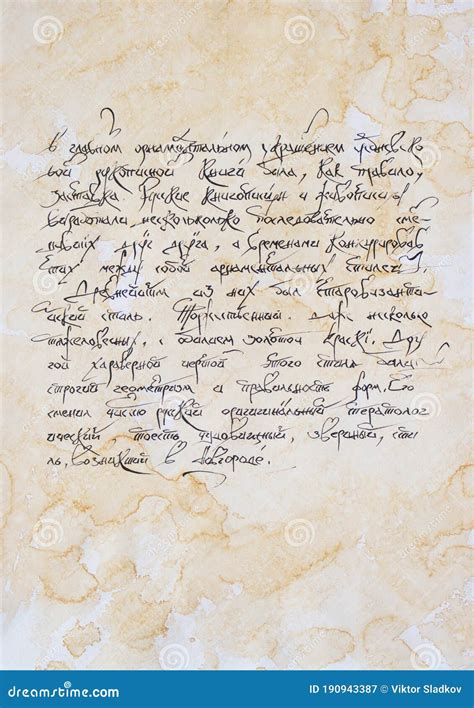 Главным орнаментальным украшением средневеко
вой рукописной книги была, как правило,
заставка. Русские книгописцы и живописцы
выработали несколько последовательно сме-
нявших друг друга, а временами конкурировав
ших между собой орнаментальных стилей.
Древнейшим из них был старовизантий-
ский стиль. Торжественный, даже несколько
тяжеловесный, с обилием золотой краски. Дру
гой характерной чертой этого стиля были
строгий геометризм и правильность форм. Его
сменил чисто русский оригинальный тератолог
ический то есть чудовищный, звериный, сти
ль, возникший в Новгороде.
dreamstime.com
ID 190943387 © Viktor Sladkov